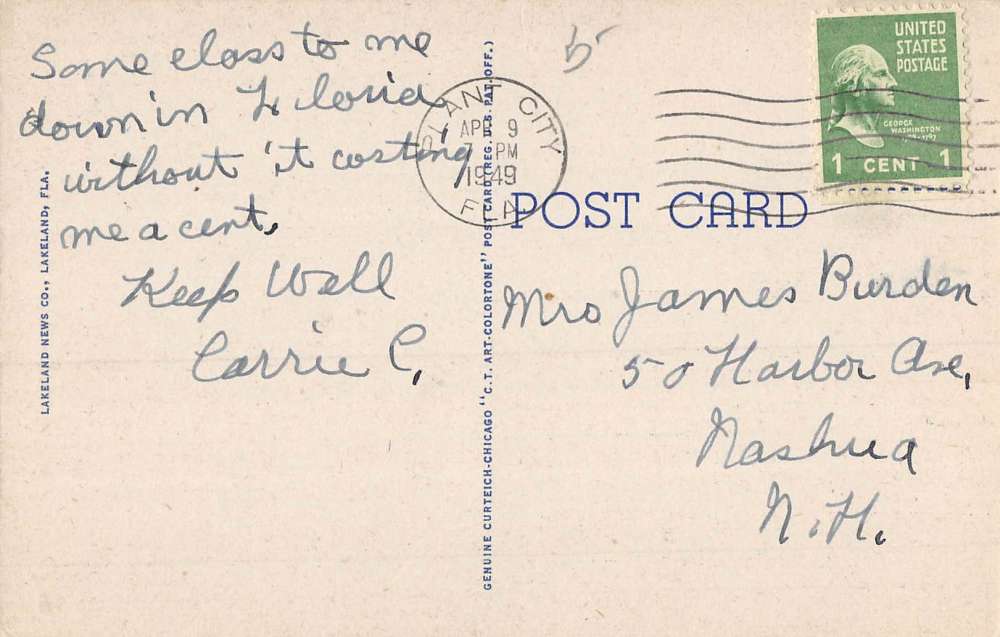 Some class to me
down in Florida
without it costing
me a cent.
Keep Well
Carrie C.
LAKELAND NEWS CO., LAKELAND, FLA.
GENUINE CURTEICH-CHICAGO "C.T. ART-COLORTONE" POST CARD (REG. U.S. PAT. OFF.)
PLANT CITY
APR 9
7 PM
1949
FLA
UNITED
STATES
POSTAGE
GEORGE
WASHINGTON
1 CENT 1
POST CARD
Mrs James Burden
50 Harbor Ave,
Nashua
N.H.